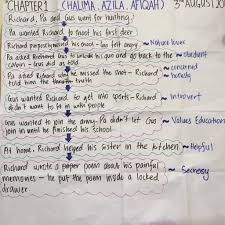 CHAPTER 1 (CHALIMA, AZILA, AFIQAH) 3rd AUGUST 20
Richard, Pa and Gus went for hunting.
Pa wanted Richard to shoot his first deer
Richard purposely missed his shot - Gus felt angry → Nature lover
Pa asked Richard to unload his gun and go back to the
cabin - Gus did as told → obedient
→ concerned
Pa asked Richard why he missed the shot - Richard
told him the truth → honesty
Gus wanted Richard to get into sports - Richard → Introvert
didn't want to fit in with people
Gus wanted to join the army - Pa didn't let Gus → Values Education
join in until he finished his school.
At home, Richard helped his sister in the kitchen → Helpful
Richard wrote a poem about his painful
memories - he put the poem inside a locked → Secrecy
drawer.